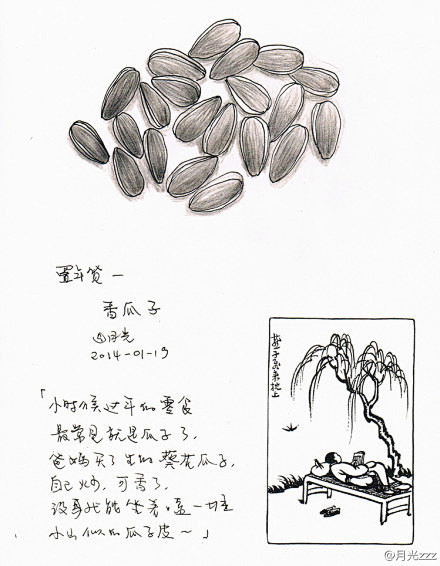 置年货一
香瓜子
@月光
2014-01-19
「小时候过年的零食
最常见就是瓜子了,
爸妈买了生的葵花瓜子,
自己炒,可香了,
没事我能坐着嗑一堆
小山似的瓜子皮~」
燕子飛来枕上
@月光zzz